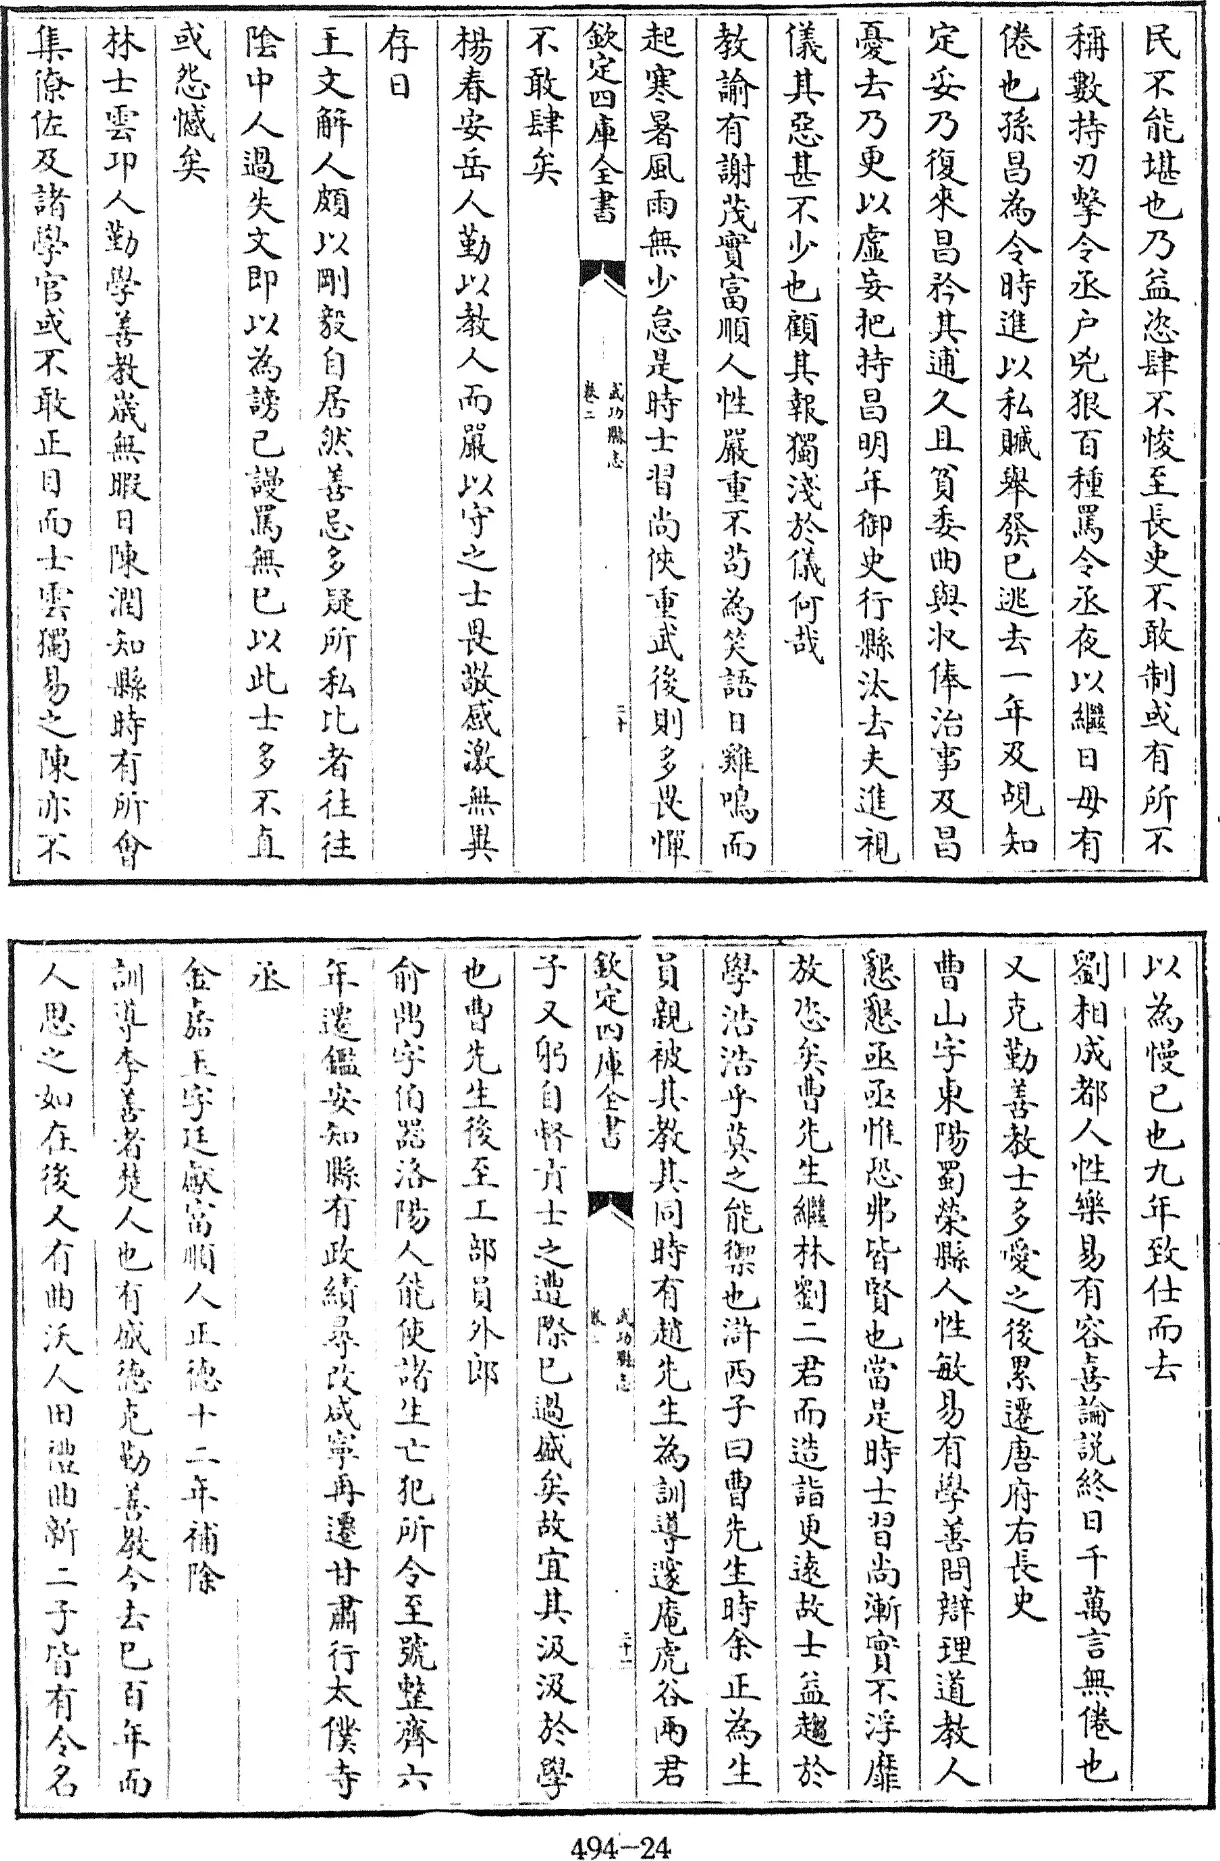 民不能堪也乃益恣肆不悛至長吏不敢制或有所不
稱數持刃擊令丞户兇狠百種罵令丞夜以繼日毋有
倦也孫昌為令時進以私贓舉發已逃去一年及覘知
定妥乃復來昌矜其逋久且貧委曲與收俸治事及昌
憂去乃更以虛妄把持昌明年御史行縣汰去夫進視
儀其惡甚不少也顧其報獨淺於儀何哉
教諭有謝茂實富順人性嚴重不苟為笑語日雞鳴而
起寒暑風雨無少怠是時士習尚俠重武後則多畏憚
欽定四庫全書
武功縣志
卷二
二十
不敢肆矣
楊春安岳人勤以教人而嚴以守之士畏敬感激無異
存日
王文解人頗以剛毅自居然善忌多疑所私比者往往
陰中人過失文即以為謗已謾罵無已以此士多不直
或怨憾矣
林士雲邛人勤學善教歲無暇日陳潤知縣時有所會
集僚佐及諸學官或不敢正目而士雲獨易之陳亦不
以為慢已也九年致仕而去
劉相成都人性樂易有容喜論説終日千萬言無倦也
又克勤善教士多愛之後累遷唐府右長史
曹山字東陽蜀榮縣人性敏易有學善問辯理道教人
懇懇亟亟惟恐弗皆賢也當是時士習尚漸實不浮靡
放恣矣曹先生繼林劉二君而造詣更遠故士益趨於
學浩浩乎莫之能禦也滸西子曰曹先生時余正為生
員親被其教其同時有趙先生為訓導邃庵虎谷兩君
欽定四庫全書
武功縣志
卷二
二十一
子又躬自督責士之遭際已過盛矣故宜其汲汲於學
也曹先生後至工部員外郎
俞鵬字伯器洛陽人能使諸生亡犯所令至號整齊六
年遷鎰安知縣有政績尋改咸寧再遷甘肅行太僕寺
丞
金嘉玉字廷獻富順人正德十二年補除
訓導李善者楚人也有盛德克勤善教今去已百年而
人思之如在後又有曲沃人田禮曲新二子皆有令名
494-24